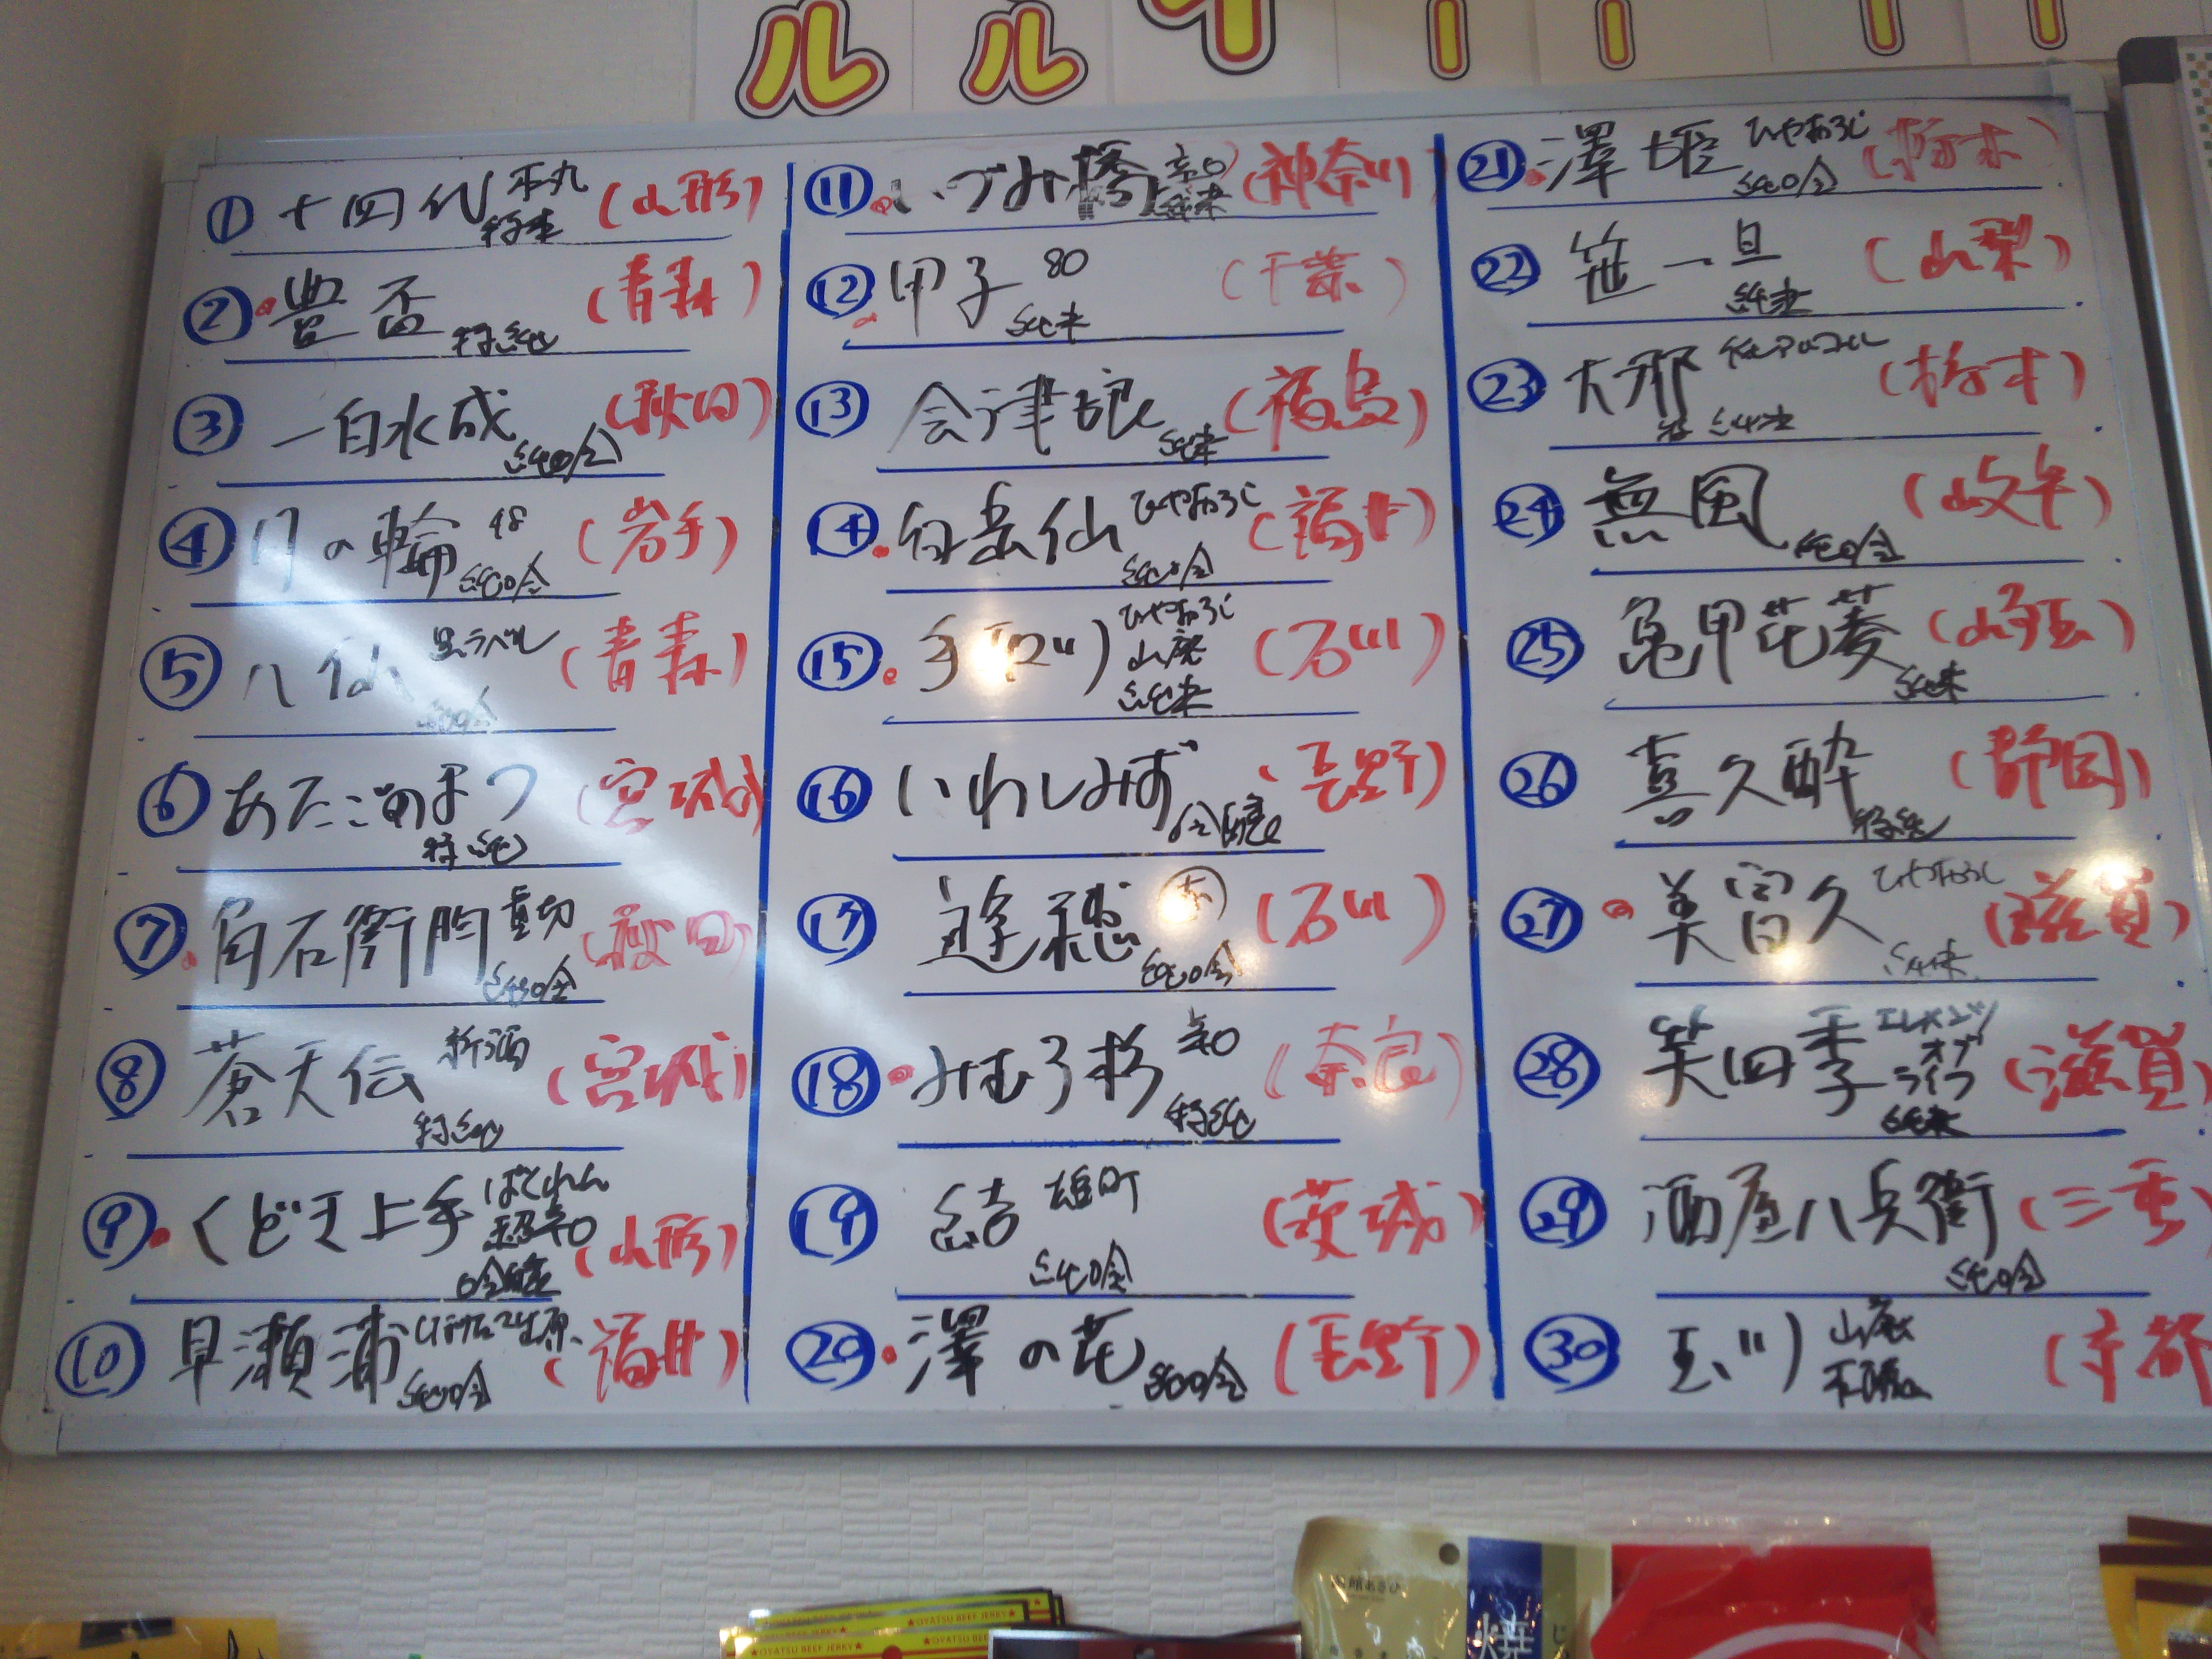 ル ル
① 十四代 本丸 特本 (山形)
② 豊盃 特純 (青森)
③ 一白水成 純吟 (秋田)
④ 月の輪 48 純吟 (岩手)
⑤ 八仙 黒ラベル 純吟 (青森)
⑥ あたごのまつ 特純 (宮城)
⑦ 角右衛門 直切 純吟 (秋田)
⑧ 蒼天伝 新酒 特純 (宮城)
⑨ くどき上手 ばくれん 超辛口 吟醸 (山形)
⑩ 早瀬浦 純吟 (福井)
⑪ いづみ橋 辛口 純米 (神奈川)
⑫ 甲子 80 純米 (千葉)
⑬ 会津娘 純米 (福島)
⑭ 白岳仙 ひやおろし 純吟 (福井)
⑮ 手取川 ひやおろし 山廃 純米 (石川)
⑯ いわしみず 吟醸 (長野)
⑰ 遊穂 赤 純吟 (石川)
⑱ みむろ杉 辛口 特純 (奈良)
⑲ 結 雄町 純吟 (茨城)
⑳ 澤の花 純吟 (長野)
㉑ 澤姫 ひやおろし 純吟 (栃木)
㉒ 笹一 旦 純米 (山梨)
㉓ 大那 特 純米 (栃木)
㉔ 無風 純吟 (岐阜)
㉕ 亀甲花菱 純米 (埼玉)
㉖ 喜久酔 特純 (静岡)
㉗ 美冨久 ひやおろし 純米 (滋賀)
㉘ 笑四季 オブ ライフ 純米 (滋賀)
㉙ 酒屋八兵衛 純吟 (三重)
㉚ 玉川 山廃 本醸 (京都
OYATSU BEEF JERKY
OYATSU BEEF JERKY
OYATSU BEEF JERKY
焼